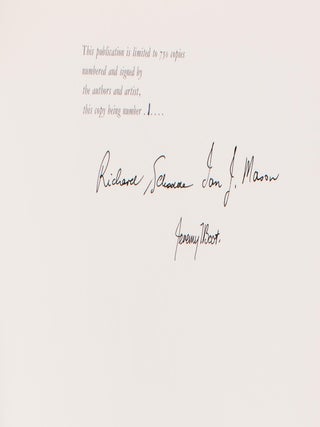 This publication is limited to 750 copies
numbered and signed by
the authors and artist,
this copy being number .1....
Richard Schodde Ian J. Mason
Jeremy Boot.